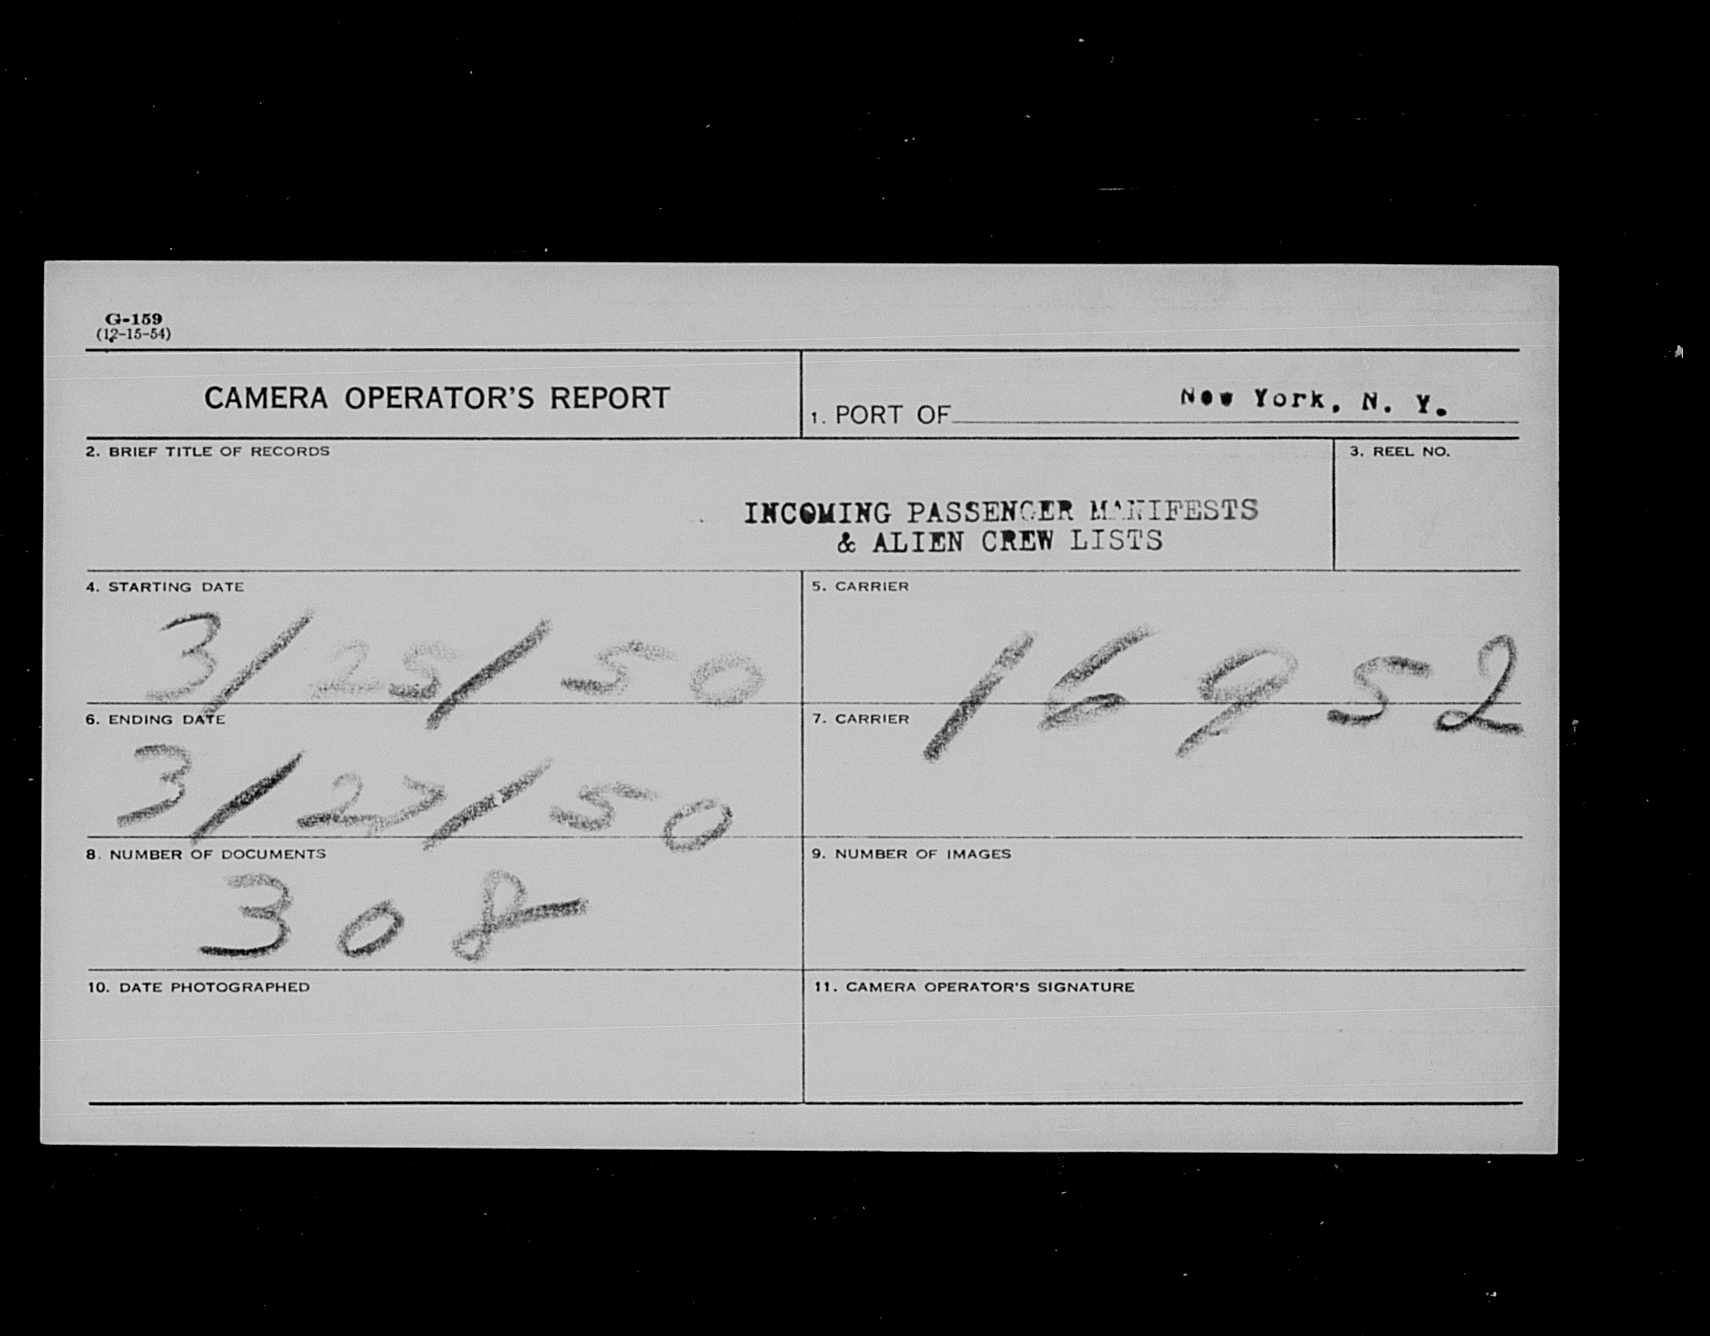 G-159
(12-15-54)
CAMERA OPERATOR'S REPORT
1. PORT OF New York, N. Y.
2. BRIEF TITLE OF RECORDS
3. REEL NO.
INCOMING PASSENGER MANIFESTS
& ALIEN CREW LISTS
4. STARTING DATE
3/25/50
5. CARRIER
16952
6. ENDING DATE
3/27/50
7. CARRIER
8. NUMBER OF DOCUMENTS
308
9. NUMBER OF IMAGES
10. DATE PHOTOGRAPHED
11. CAMERA OPERATOR'S SIGNATURE